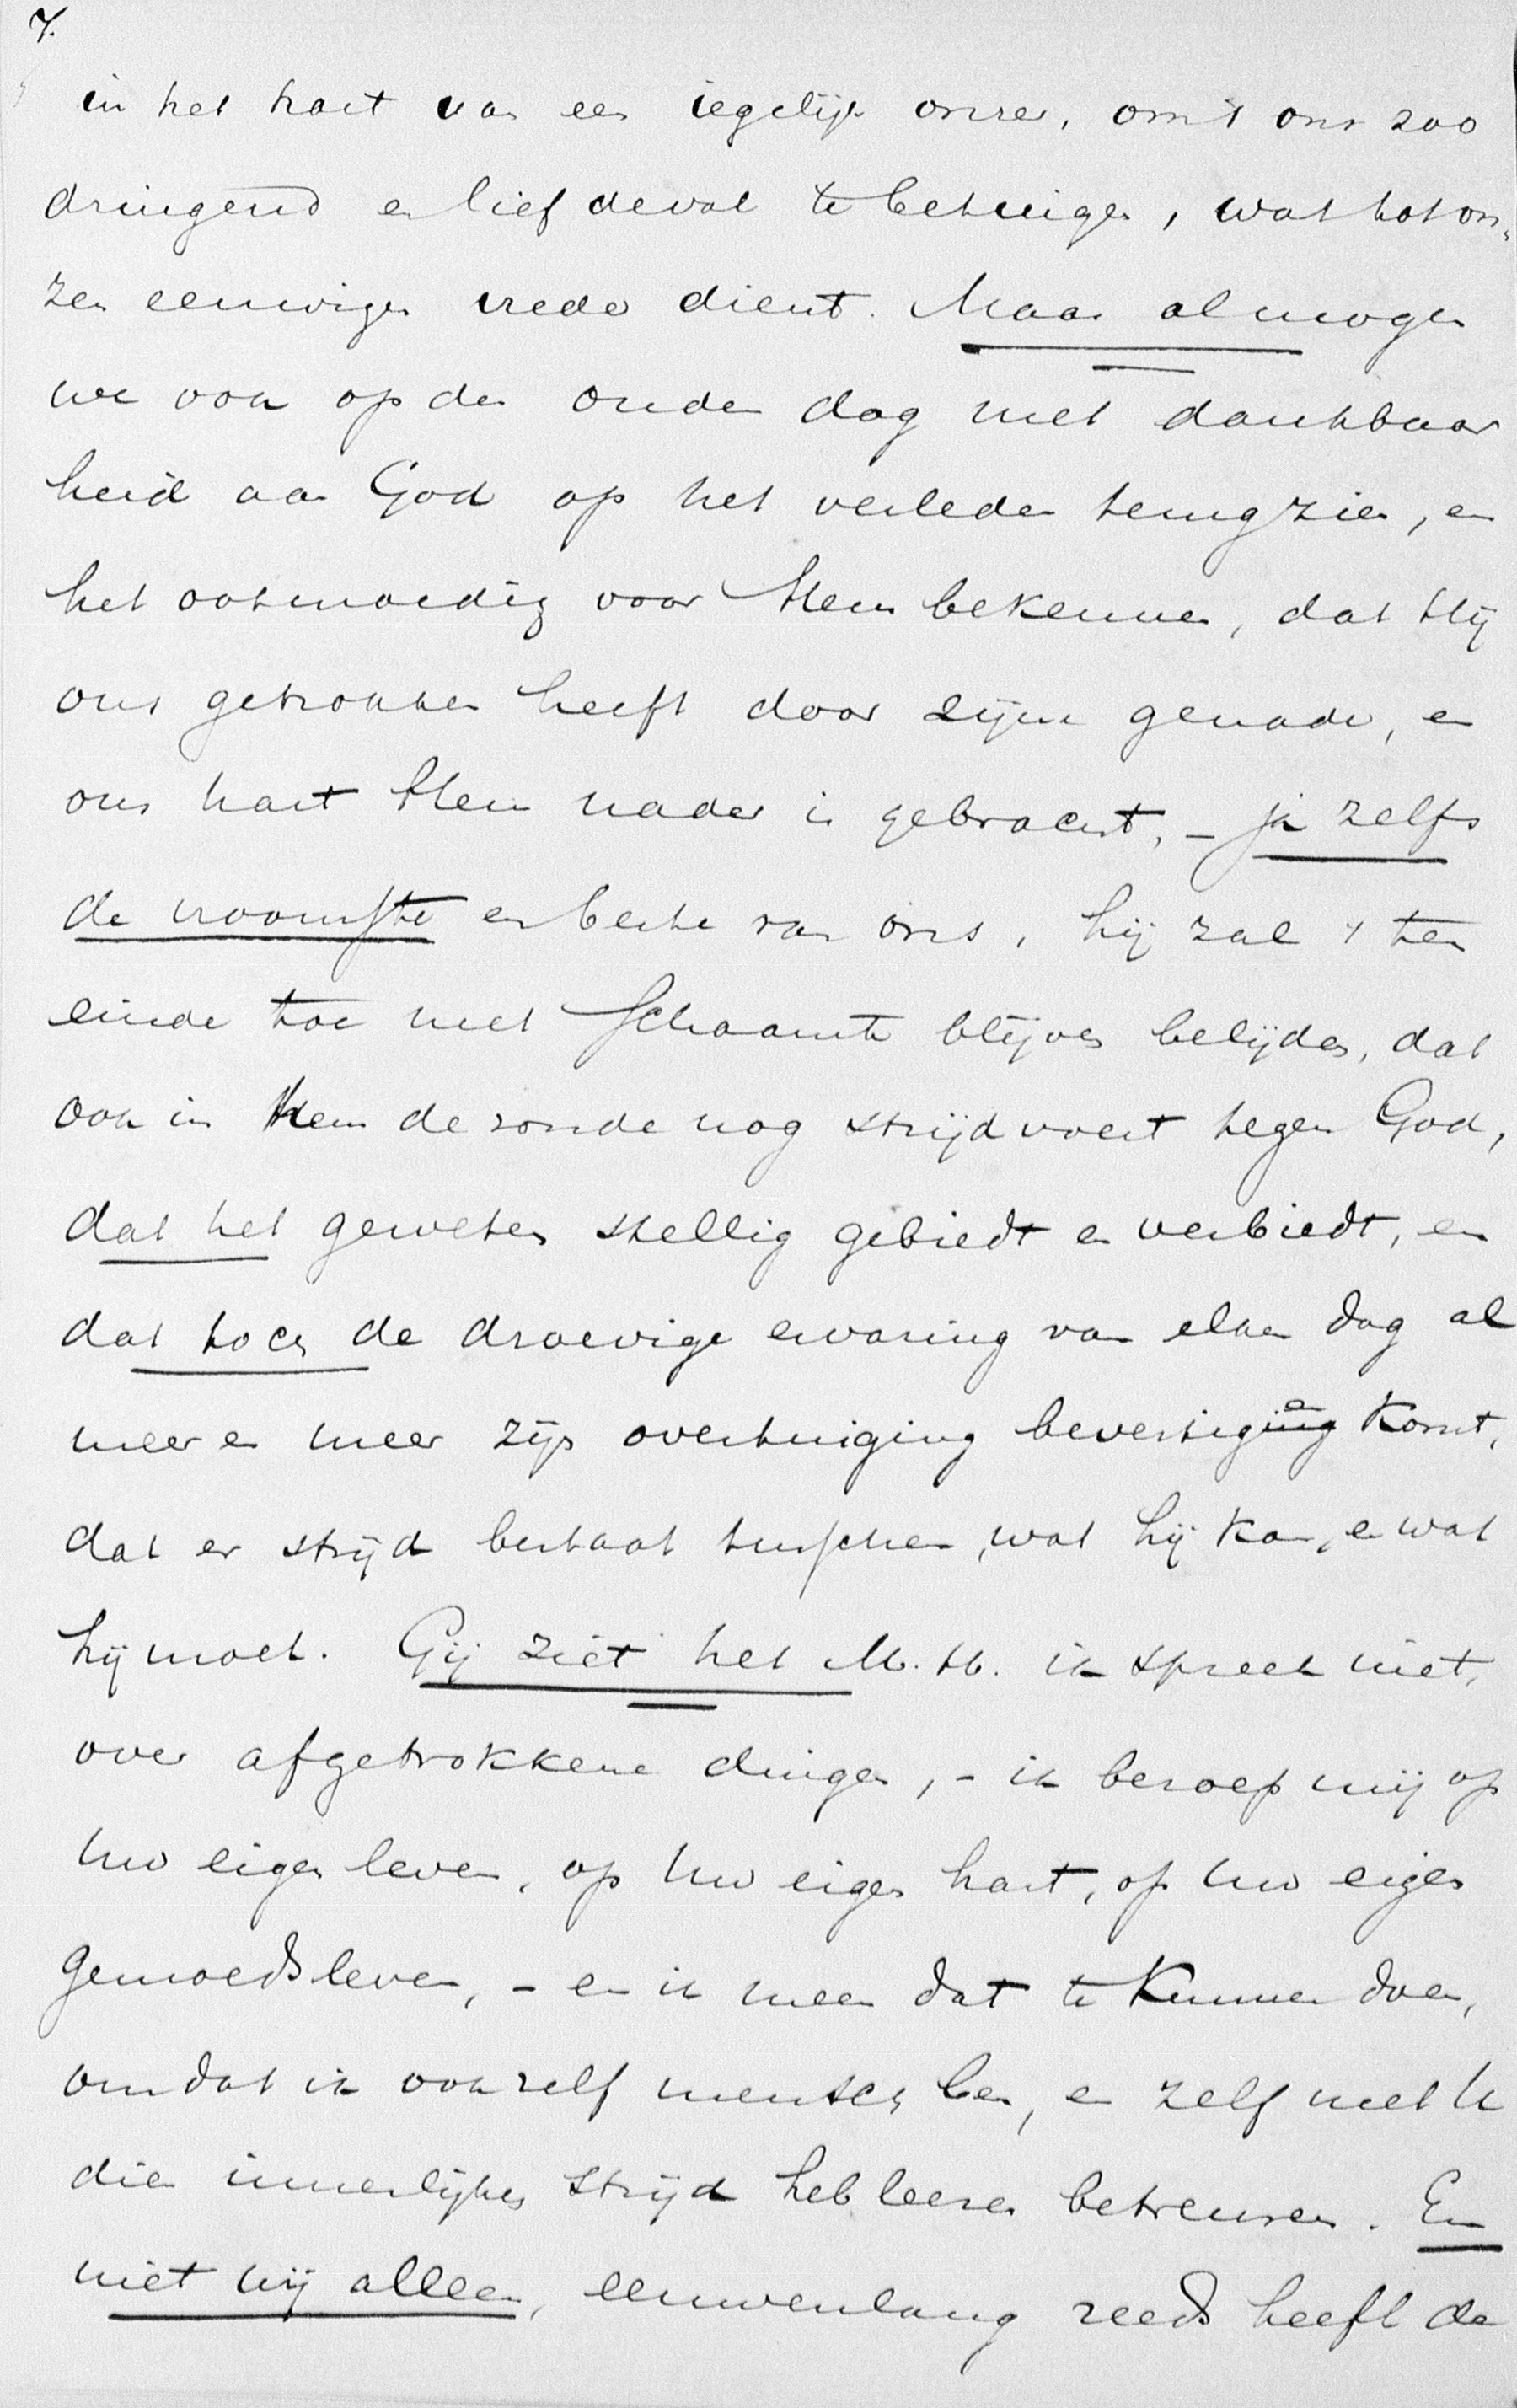 7.
in het hart van een iegelijk onzer, om 't ons zoo
dringend en liefdevol te betuigen, wat tot on„
zen eeuwigen vrede dient. Maar al mogen
we ook op den ouden dag met dankbaar
heid aan God op het verleden terugzien, en
het ootmoedig voor Hem bekennen, dat Hij
ons getrokken heeft door zijne genade, en
ons hart Hem nader is gebracht, – ja zelfs
de vroomste en beste van ons, hij zal 't ten
einde toe met schaamte blijven belijden, dat
ook in hem de zonde nog strijd voert tegen God,
dat het geweten stellig gebiedt en verbiedt, en
dat toch de droevige ervaring van elken dag al
meer en meer zijn overtuiging bevestigen komt,
dat er strijd bestaat tusschen, wat hij kan, en wat
hij moet. Gij ziet het M. H. ik spreek niet,
over afgetrokkene dingen, – ik beroep mij op
Uw eigen leven, op Uw eigen hart, op Uw eigen
gemoedsleven, – en ik meen dat te kunnen doen,
omdat ik ook zelf mensch ben, en zelf met U
dien innerlijken strijd heb leeren betreuren. En
niet wij alleen, eeuwenlang reeds heeft de